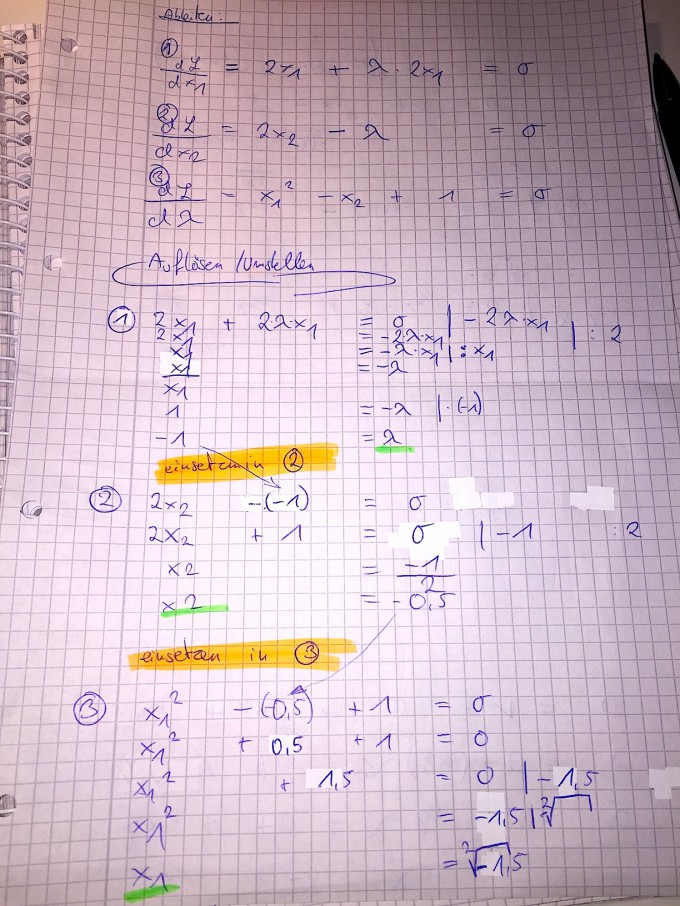 Ableiten:
① dL/dx1 = 2x1 + λ · 2x1 = 0
② dL/dx2 = 2x2 - λ = 0
③ dL/dλ = x1² - x2 + 1 = 0
Auflösen / Umstellen
① 2x1 + 2λx1 = 0 | - 2λ·x1
2x1 = -2λ·x1 | : 2
x1 = -λ·x1 | : x1
x1/x1 = -λ
1 = -λ | · (-1)
-1 = λ
einsetzen in ②
② 2x2 -(-1) = 0
2x2 + 1 = 0 | -1 :2
x2 = -1/2
x2 = -0,5
einsetzen in ③
③ x1² -(-0,5) + 1 = 0
x1² + 0,5 + 1 = 0
x1² + 1,5 = 0 | -1,5
x1² = -1,5 | ²√
x1 = ²√-1,5